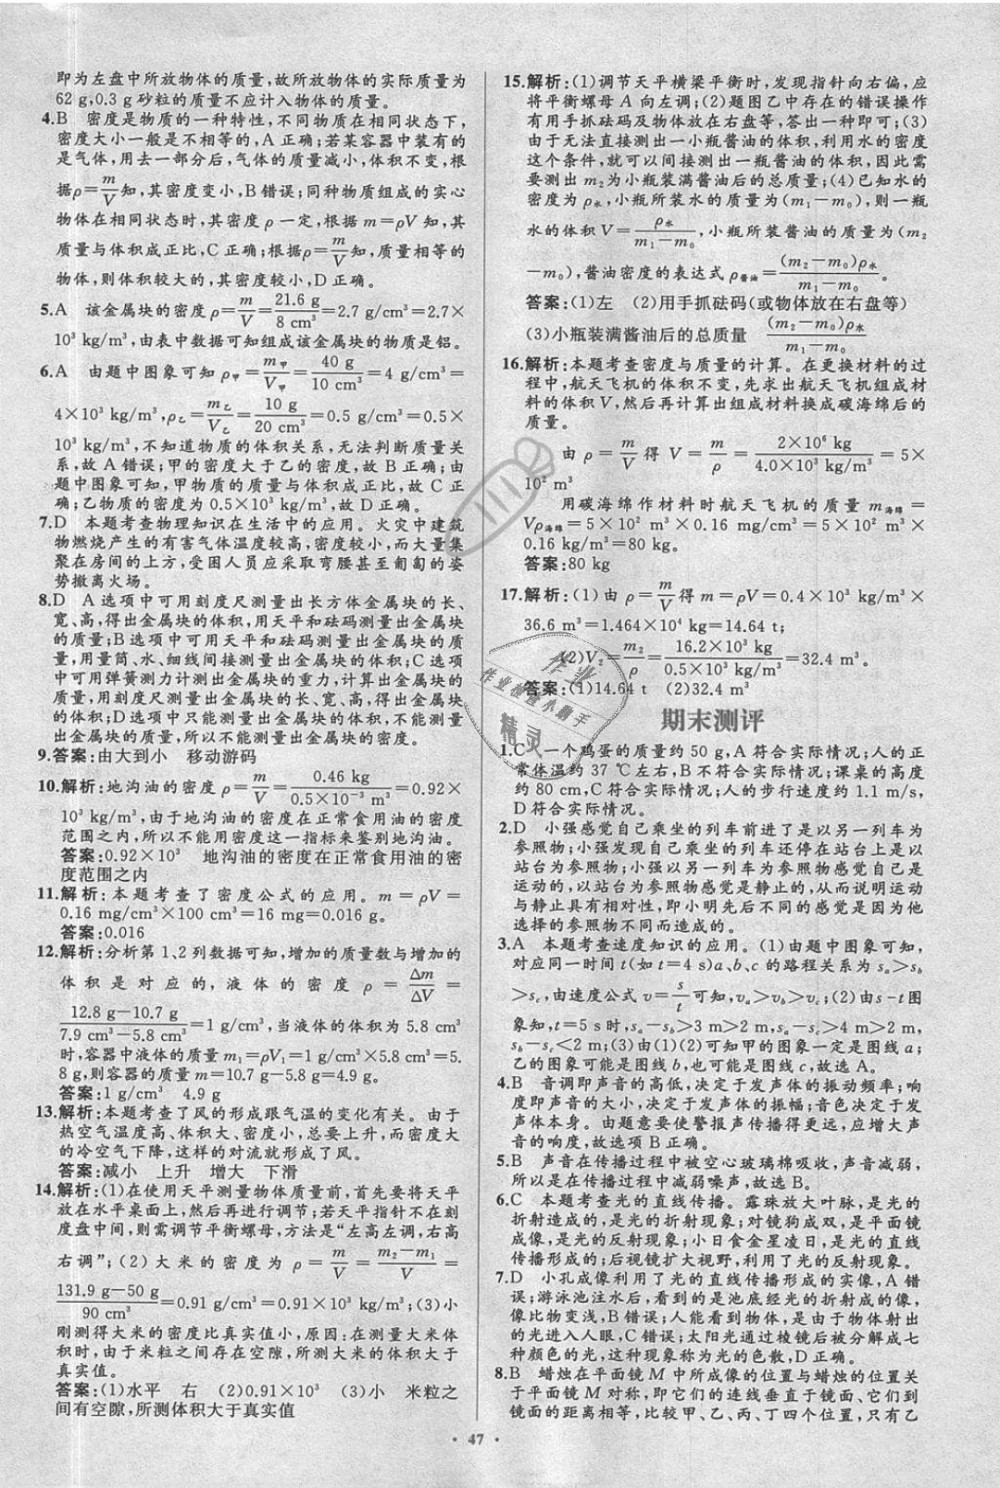 即为左盘中所放物体的质量,故所放物体的实际质量为
62 g,0.3 g 砂粒的质量不应计入物体的质量。
4.B 密度是物质的一种特性,不同物质在相同状态下,
密度大小一般是不相等的,A 正确;若某容器中装有的
是气体,用去一部分后,气体的质量减小,体积不变,根
据ρ=m/V知,其密度变小,B 错误;同种物质组成的实心
物体在相同状态时,其密度 ρ 一定,根据 m=ρV 知,其
质量与体积成正比,C 正确;根据ρ=m/V知,质量相等的
物体,则体积较大的,其密度较小,D 正确。
5.A 该金属块的密度 ρ=m/V=21.6 g/8 cm³=2.7 g/cm³=2.7×
10³ kg/m³,由表中数据可知组成该金属块的物质是铝。
6.A 由题中图象可知 ρ甲=m甲/V甲=40 g/10 cm³=4 g/cm³=
4×10³ kg/m³,ρ乙=m乙/V乙=10 g/20 cm³=0.5 g/cm³=0.5×
10³ kg/m³,不知道物质的体积关系,无法判断质量关
系,故 A 错误;甲的密度大于乙的密度,故 B 正确;由
题中图象可知,甲物质的质量与体积成正比,故 C 正
确;乙物质的密度为 0.5×10³ kg/m³,故 D 正确。
7.D 本题考查物理知识在生活中的应用。火灾中建筑
物燃烧产生的有害气体温度较高,密度较小,而大量集
聚在房间的上方,受困人员应采取弯腰甚至匍匐的姿
势撤离火场。
8.D A 选项中可用刻度尺测量出长方体金属块的长、
宽、高,得出金属块的体积,用天平和砝码测量出金属块
的质量;B 选项中可用天平和砝码测量出金属块的质
量,用量筒、水、细线间接测量出金属块的体积;C 选项
中可用弹簧测力计测出金属块的重力,计算出金属块的
质量,用刻度尺测量出金属块的长、宽、高,得出金属块
的体积;D 选项中只能测量出金属块的体积,不能测量
出金属块的质量,所以不能测量出金属块的密度。
9.答案:由大到小 移动游码
10.解析:地沟油的密度 ρ=m/V=0.46 kg/0.5×10⁻³ m³=0.92×
10³ kg/m³,由于地沟油的密度在正常食用油的密度
范围之内,所以不能用密度这一指标来鉴别地沟油。
答案:0.92×10³ 地沟油的密度在正常食用油的密
度范围之内
11.解析:本题考查了密度公式的应用。m=ρV=
0.16 mg/cm³×100 cm³=16 mg=0.016 g。
答案:0.016
12.解析:分析第 1、2 列数据可知,增加的质量数与增加的
体积是对应的,液体的密度 ρ=Δm/ΔV=
12.8 g−10.7 g/7.9 cm³−5.8 cm³=1 g/cm³,当液体的体积为 5.8 cm³
时,容器中液体的质量 m₁=ρV₁=1 g/cm³×5.8 cm³=5.
8 g,则容器的质量 m=10.7 g−5.8 g=4.9 g。
答案:1 g/cm³ 4.9 g
13.解析:本题考查了风的形成跟气温的变化有关。由于
热空气温度高、体积大、密度小,总要上升,而密度大
的冷空气下降,这样的对流就形成了风。
答案:减小 上升 增大 下滑
14.解析:(1)在使用天平测量物体质量前,首先要将天平
放在水平桌面上,然后再进行调节;若天平指针不在刻
度盘中间,则需调节平衡螺母,方法是“左高左调,右高
右调”;(2)大米的密度为 ρ=m/V=m₂−m₁/V=
131.9 g−50 g/90 cm³=0.91 g/cm³=0.91×10³ kg/m³;(3)小
刚测得大米的密度比真实值小,原因:在测量大米体
积时,由于米粒之间存在空隙,所测大米的体积大于
真实值。
答案:(1)水平 右 (2)0.91×10³ (3)小 米粒之
间有空隙,所测体积大于真实值
15.解析:(1)调节天平横梁平衡时,发现指针向右偏,应
将平衡螺母 A 向左调;(2)题图乙中存在的错误操作
有用手抓砝码及物体放在右盘等,答出一种即可;(3)
由于无法直接测出一小瓶酱油的体积,利用水的密度
这个条件,就可以间接测出一瓶酱油的体积,因此需
要测出 m₂ 为小瓶装满酱油后的总质量;(4)已知水的
密度为 ρ水,小瓶所装水的质量为(m₁−m₀),则一瓶
水的体积 V=ρ水/m₁−m₀,小瓶所装酱油的质量为(m₂
−m₀),酱油密度的表达式 ρ酱油=(m₂−m₀)ρ水/m₁−m₀。
答案:(1)左 (2)用手抓砝码(或物体放在右盘等)
(3)小瓶装满酱油后的总质量 (m₂−m₀)ρ水/m₁−m₀
16.解析:本题考查密度与质量的计算。在更换材料的过
程中,航天飞机的体积不变,先求出航天飞机组成材
料的体积 V,然后再计算出组成材料换成碳海绵后的
质量。
由 ρ=m/V 得 V=m/ρ=2×10⁶ kg/4.0×10³ kg/m³=5×
10² m³
用碳海绵作材料时航天飞机的质量 m海绵=
Vρ海绵=5×10² m³×0.16 mg/cm³=5×10² m³×
0.16 kg/m³=80 kg。
答案:80 kg
17.解析:(1)由 ρ=m/V得 m=ρV=0.4×10³ kg/m³×
36.6 m³=1.464×10⁴ kg=14.64 t;
(2)V₂=m/ρ₂=16.2×10³ kg/0.5×10³ kg/m³=32.4 m³。
答案:(1)14.64 t (2)32.4 m³
期末测评
1.C 一个鸡蛋的质量约 50 g,A 符合实际情况;人的正
常体温约 37 ℃左右,B 不符合实际情况;课桌的高度
约 80 cm,C 符合实际情况;人的步行速度约 1.1 m/s,
D 符合实际情况。
2.D 小强感觉自己乘坐的列车前进了是以另一列车为
参照物;小强发现自己乘坐的列车还停在站台上是以
站台为参照物;小强以另一列车为参照物感觉自己是
运动的,以站台为参照物感觉是静止的,从而说明运动
与静止具有相对性,即小明先后不同的感觉是因他
选择的参照物不同而造成的。
3.A 本题考查速度知识的应用。(1)由题中图象可知,
对应同一时间 t(如 t=4 s)a、b、c 的路程关系为 sa>sb
>sc,由速度公式 v=s/t可知,va>vb>vc;(2)由 s-t 图
象知,t=5 s 时,sa−sb>3 m>2 m,sa−sc>4 m>2 m,
sb−sc<2 m;(3)由(1)(2)可知甲的图象一定是图线 a;
乙的图象可能是图线 b,也可能是图线 c,故选 A。
4.B 音调即声音的高低,决定于发声体的振动频率;响
度即声音的大小,决定于发声体的振幅;音色决定于发
声体本身。由题意要使警报声传播得更远,应增大声
音的响度,故选项 B 正确。
5.B 声音在传播过程中被空心玻璃棉吸收,声音减弱,
所以是在传播过程中减弱噪声,故选 B。
6.C 本题考查光的直线传播。露珠放大叶脉,是光的
折射造成的,是光的折射现象;对镜狗成双,是平面镜
成像,是光的反射现象;小日食金星凌日,是光的直线
传播形成的;后视镜扩大视野,利用了光的反射现象。
7.D 小孔成像利用了光的直线传播形成的实像,A 错
误;游泳池注水后,看到的是池底经光的折射成的像,
像比物变浅,B 错误;人能看到物体,是由于物体射出
的光进入人眼,C 错误;太阳光通过棱镜后被分解成七
种颜色的光,这种现象称为光的色散,D 正确。
8.B 蜡烛在平面镜 M 中所成像的位置与蜡烛的位置关于
平面镜 M 对称,即它们的连线垂直于镜面、它们到
镜面的距离相等,比较甲、乙、丙、丁四个位置,只有乙
• 47 •
作业
作业检查小助手
精灵